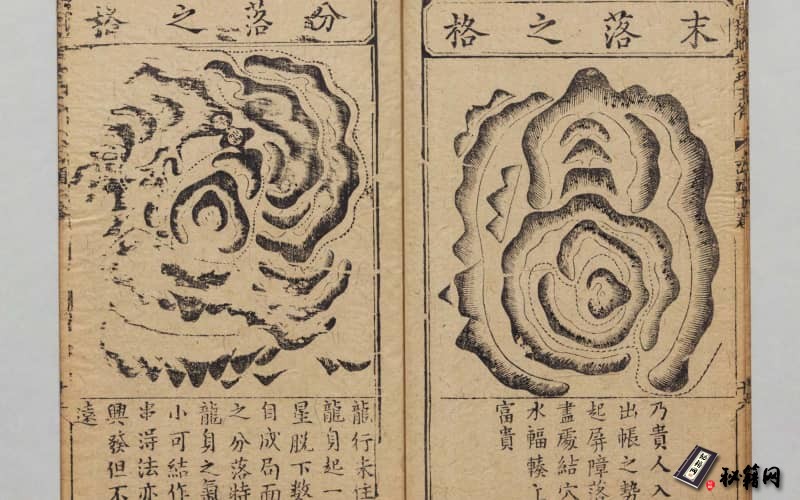 末落之格
乃貴人入
出帳之势
起屏障落
盡處結穴
水輻輳
富貴
分落之格
龍行未住
龍身起一
星脱下数
自成局面
之分落特
龍身之氣
小可結作
串淂法亦
興發但不
遠
秘籍网